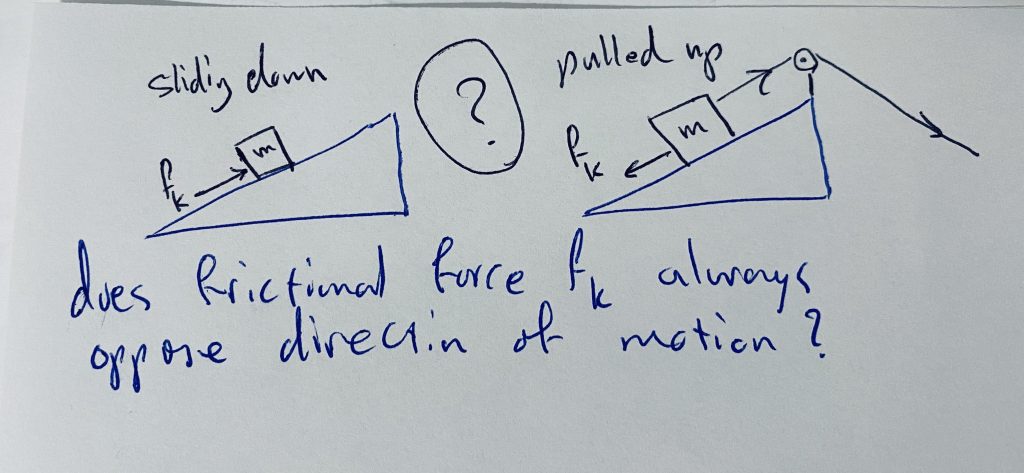 slidig down
?
pulled up
m
fk
m
fk
does frictional force fk always
oppose direction of motion?